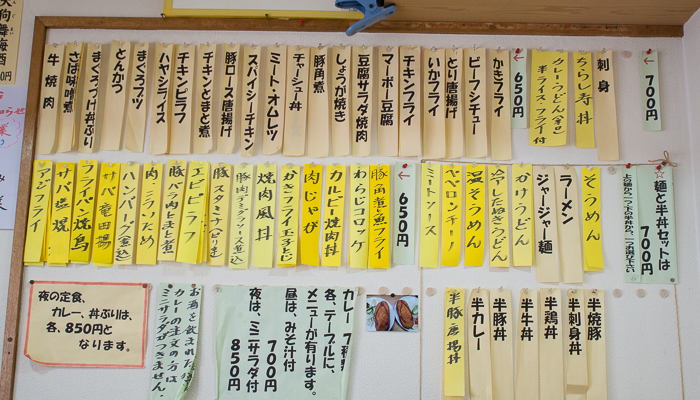 700円
←
刺身
ちらし寿丼
カレーうどん(辛口)
半ライス・フライ付
←
650円
かきフライ
ビーフシチュー
とり唐揚げ
いかフライ
チキンフライ
マーボー豆腐
豆腐サラダ焼肉
しょうが焼き
豚角煮
チャーシュー丼
ミート・オムレツ
スパイシーチキン
豚ロース唐揚げ
チキンとまと煮
チキンピラフ
ハヤシライス
まぐろブツ
とんかつ
まぐろづけ丼ぶり
さば味噌煮
牛焼肉
☆麺と半丼セットは
700円
そうめん
ラーメン
ジャージャー麺
かけうどん
冷やしたぬきうどん
温そうめん
ペペロンチーノ
ミートソース
←
650円
豚角煮・魚フライ
わらじコロッケ
カルビー焼肉丼
肉じゃが
かきフライ玉子とじ
焼肉風丼
豚肉デミグラソース煮込
豚スタミナ(ピリ辛)
エビピラフ
豚バラ肉とまと煮
肉ニラいため
ハンバーグ(煮込)
サバ竜田揚
フライパン焼鳥
サバ塩焼
アジフライ
半焼豚
半刺身丼
半鶏丼
半牛丼
半豚丼
半カレー
半豚唐揚丼
各、テーブルに、
メニューが有ります。
昼は、みそ汁付
700円
夜は、ミニサラダ付
850円
カレーの注文の方は
ミニサラダがつきません。
夜の定食、
カレー、丼ぶりは、
各、850円と
なります。